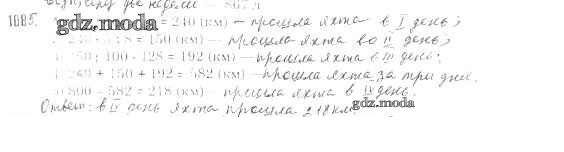 две недели — 867 л
1085. = 240 (км) — прошла яхта в I день;
gdz.moda
= 150 (км) — прошла яхта во II день;
: 100 · 128 = 192 (км) — прошла яхта в III день;
240 + 150 + 192 = 582 (км) — прошла яхта за три дня.
800 – 582 = 218 (км) — прошла яхта в IV день.
Ответ: в IV день яхта прошла 218 км.
gdz.moda